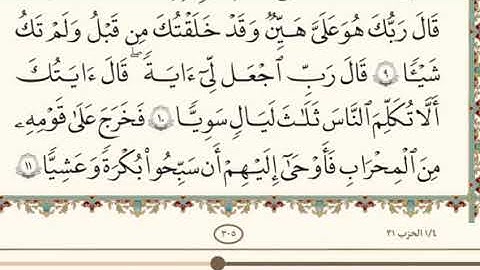 قَالَ رَبُّكَ هُوَ عَلَىَّ هَيِّنٌ وَقَدْ خَلَقْتُكَ مِن قَبْلُ وَلَمْ تَكُ
شَيْـًٔا ٩ قَالَ رَبِّ ٱجْعَل لِّىٓ ءَايَةً ۚ قَالَ ءَايَتُكَ
أَلَّا تُكَلِّمَ ٱلنَّاسَ ثَلَـٰثَ لَيَالٍ سَوِيًّا ١٠ فَخَرَجَ عَلَىٰ قَوْمِهِۦ
مِنَ ٱلْمِحْرَابِ فَأَوْحَىٰٓ إِلَيْهِمْ أَن سَبِّحُوا۟ بُكْرَةً وَعَشِيًّا ١١
١/٤ الحزب ٣١
٣٠٥